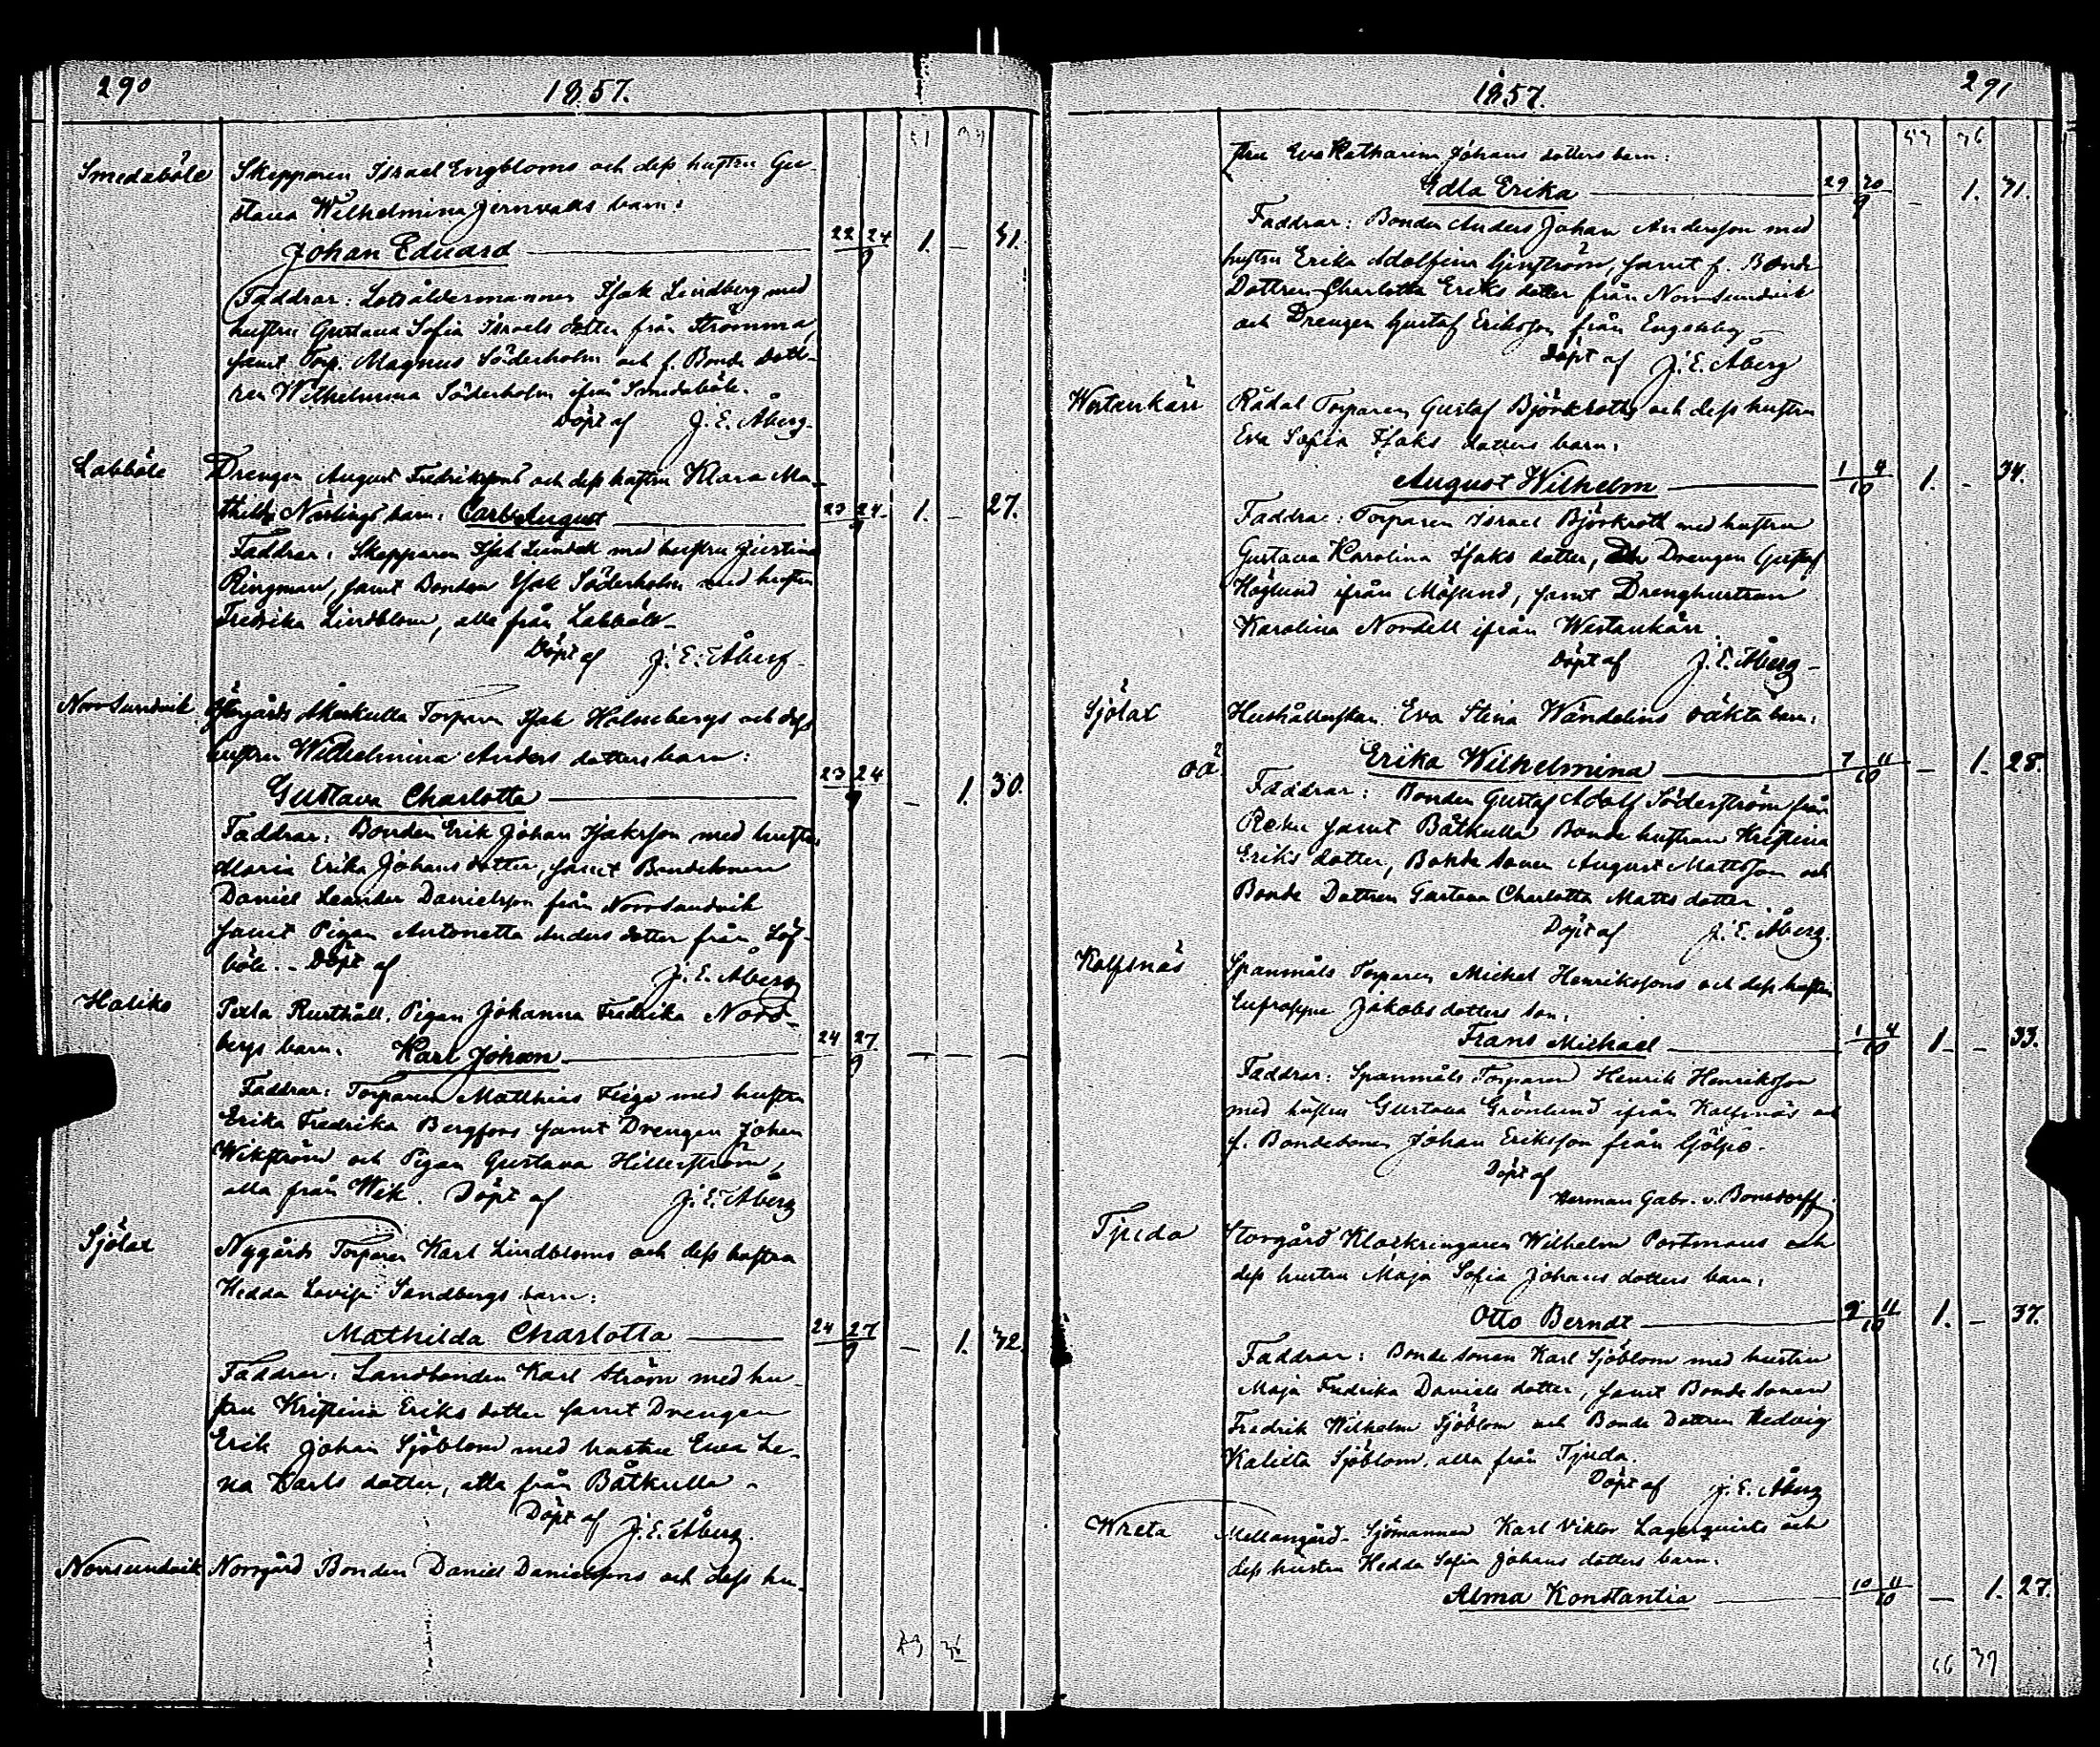 290
1857.
Smedaböle
Skepparen Israel Engbloms och dess hustru Gu-
stava Wilhelmina Jernvalls barn:
Johan Eduard 22 24 9 1. — 31.
Faddrar: Lotsåldermannen Isak Lindberg med
hustru Gustava Sofia Israels dotter från Strömma,
samt Torp. Magnus Söderholm och f. Bonde dott-
ren Wilhelmina Söderholm ifrån Smedaböle.
Döpt af J. E. Åberg
Labböle
Drengen August Fredrikssons och dess hustru Klara Ma-
thilda barn: Carl August 23 24 9 1. — 27.
Faddrar: Skepparen Isak med hustru Justina
Ringman, samt Bonden Isak Söderholm med hustru
Fredrika Lindblom, alla från Labböle
Döpt af J. E. Åberg
Norrsundvik
Torparen Isak Holmbergs och dess
hustru Wilhelmina Anders dotters barn:
Gustava Charlotta 23 24 9 — 1. 30.
Faddrar: Bonden Erik Johan Isaksson med hustru
Maria Erika Johans dotter, samt Bondesonen
Daniel Leander Danielsson från Norrsundvik
samt Pigan Antonetta Anders dotter från Löf-
böle. – Döpt af J. E. Åberg
Haliko
Rusthåll. Pigan Johanna Fredrika Nord-
bergs barn. Karl Johan 24 27 9 — — —
Faddrar: Torparen Matthias med hustru
Erika Fredrika Bergfors samt Drengen Johan
Wikström och Pigan Gustava Hillerström,
alla från Wik. Döpt af J. E. Åberg
Sjölax
Nygårds Torparen Karl Lindbloms och dess hustru
Hedda Lovisa Sandbergs barn:
Mathilda Charlotta 24 27 9 — 1. 32.
Faddrar: Landbonden Karl Ström med hu-
stru Kristina Eriks dotter samt Drengen
Erik Johan Sjöblom med hustru Eva Le-
na Karls dotter, alla från Båtkulla
Döpt af J. E. Åberg.
Norrsundvik
Norrgård Bonden Daniel Danielssons och dess hu-
291
1857.
stru Eva Katharina Johans dotters barn:
Edla Erika 29 30 9 — 1. 31.
Faddrar: Bonden Anders Johan Andersson med
hustru Erika Adolfina, samt f. Bonde
Dottren Charlotta Eriks dotter från Norrsundvik
och Drengen Gustaf Eriksson från Engesby
Döpt af J. E. Åberg
Westankärr
Rådal Torparen Gustaf Björkroths och dess hustru
Eva Sofia Isaks dotters barn:
August Wilhelm 1 4 10 1. — 34.
Faddrar: Torparen Israel Björkroth med hustru
Gustava Karolina Isaks dotter, Drengen Gustaf
Höglund ifrån Mösund, samt Drenghustrun
Karolina Nordell ifrån Westankärr.
Döpt af J. E. Åberg
Sjölax
Hushållerskan Eva Stina Wändelins oäkta barn:
oä.
Erika Wilhelmina 7 11 10 — 1. 28.
Faddrar: Bonden Gustaf Adolf Söderström från
Reku samt Båtkulla Bonde hustrun Kristina
Eriks dotter, Bonde sonen August Mattsson och
Bonde Dottren Gustava Charlotta Matts dotter.
Döpt af J. E. Åberg.
Kalfsnäs
Spanmåls Torparen Michel Henrikssons och dess hustru
Eufrosyne Jakobs dotters son:
Frans Michael 1 4 10 1. — 33.
Faddrar: Spanmåls Torparen Henrik Henriksson
med hustru Gustava Grönlund ifrån Kalfsnäs och
f. Bondesonen Johan Eriksson från
Döpt af
Herman Gabr. v. Bonsdorff.
Tjuda
Storgård Klockringaren Wilhelm Portmans och
dess hustru Maja Sofia Johans dotters barn:
Otto Berndt 9 11 10 1. — 37.
Faddrar: Bonde sonen Karl Sjöblom med hustru
Maja Fredrika Daniels dotter, samt Bonde sonen
Fredrik Wilhelm Sjöblom och Bonde Dottren Hedvig
Kalixta Sjöblom, alla från Tjuda.
Döpt af J. E. Åberg
Wreta
Mellangård Sjömannen Karl Viktor Lagerqvists och
dess hustru Hedda Sofia Johans dotters barn:
Alma Konstantia 10 11 10 — 1. 27.